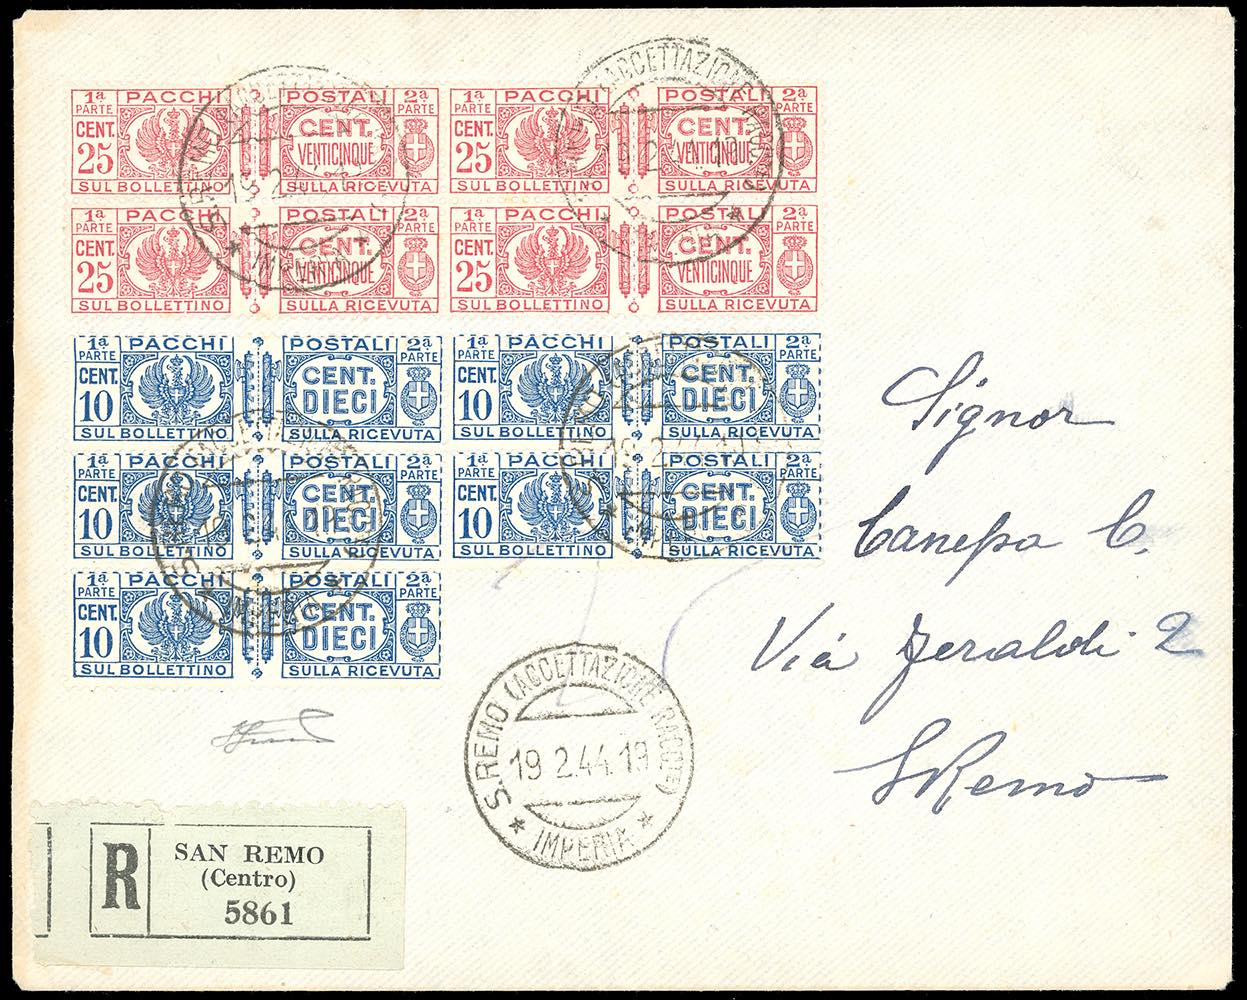 1ª PACCHI POSTALI 2ª 1ª PACCHI POSTALI 2ª
PARTE PARTE PARTE PARTE
CENT. 25 CENT. VENTICINQUE CENT. 25 CENT. VENTICINQUE
SUL BOLLETTINO SULLA RICEVUTA SUL BOLLETTINO SULLA RICEVUTA
1ª PACCHI POSTALI 2ª 1ª PACCHI POSTALI 2ª
PARTE PARTE PARTE PARTE
CENT. 25 CENT. VENTICINQUE CENT. 25 CENT. VENTICINQUE
SUL BOLLETTINO SULLA RICEVUTA SUL BOLLETTINO SULLA RICEVUTA
1ª PACCHI POSTALI 2ª 1ª PACCHI POSTALI 2ª
PARTE PARTE PARTE PARTE
CENT. 10 CENT. DIECI CENT. 10 CENT. DIECI
SUL BOLLETTINO SULLA RICEVUTA SUL BOLLETTINO SULLA RICEVUTA
1ª PACCHI POSTALI 2ª 1ª PACCHI POSTALI 2ª
PARTE PARTE PARTE PARTE
CENT. 10 CENT. DIECI CENT. 10 CENT. DIECI
SUL BOLLETTINO SULLA RICEVUTA SUL BOLLETTINO SULLA RICEVUTA
1ª PACCHI POSTALI 2ª
PARTE PARTE
CENT. 10 CENT. DIECI
SUL BOLLETTINO SULLA RICEVUTA
Signor
Canepa C.
Via Geraldi 2
S Remo
S. REMO (ACCETTAZIONE RACC.)
19 2.44.19
* IMPERIA *
R
SAN REMO
(Centro)
5861